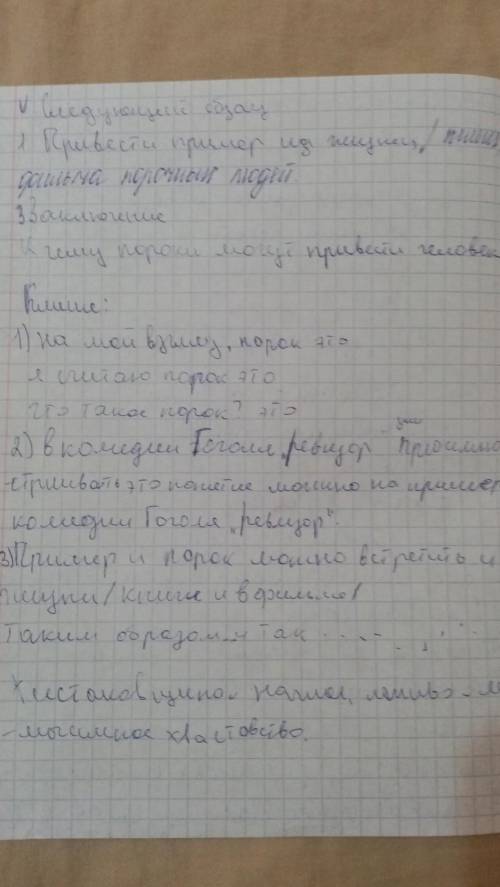 V Следующий абзац
1 Привести пример из жизни /
порочных людей.
Заключение
К чему пороки могут привести человек
Клише:
1) на мой взгляд, порок это
я считаю порок это
Что такое порок? это
2) в комедии Гоголя „ревизор
-стрировать это понятие можно на пример
комедии Гоголя „ревизор".
3) Пример и порок можно встретить и
жизни / книги и в фильме /
Таким образом и так .....
Хлестаковщина - наглое, -л
-мысленное хвастовство.